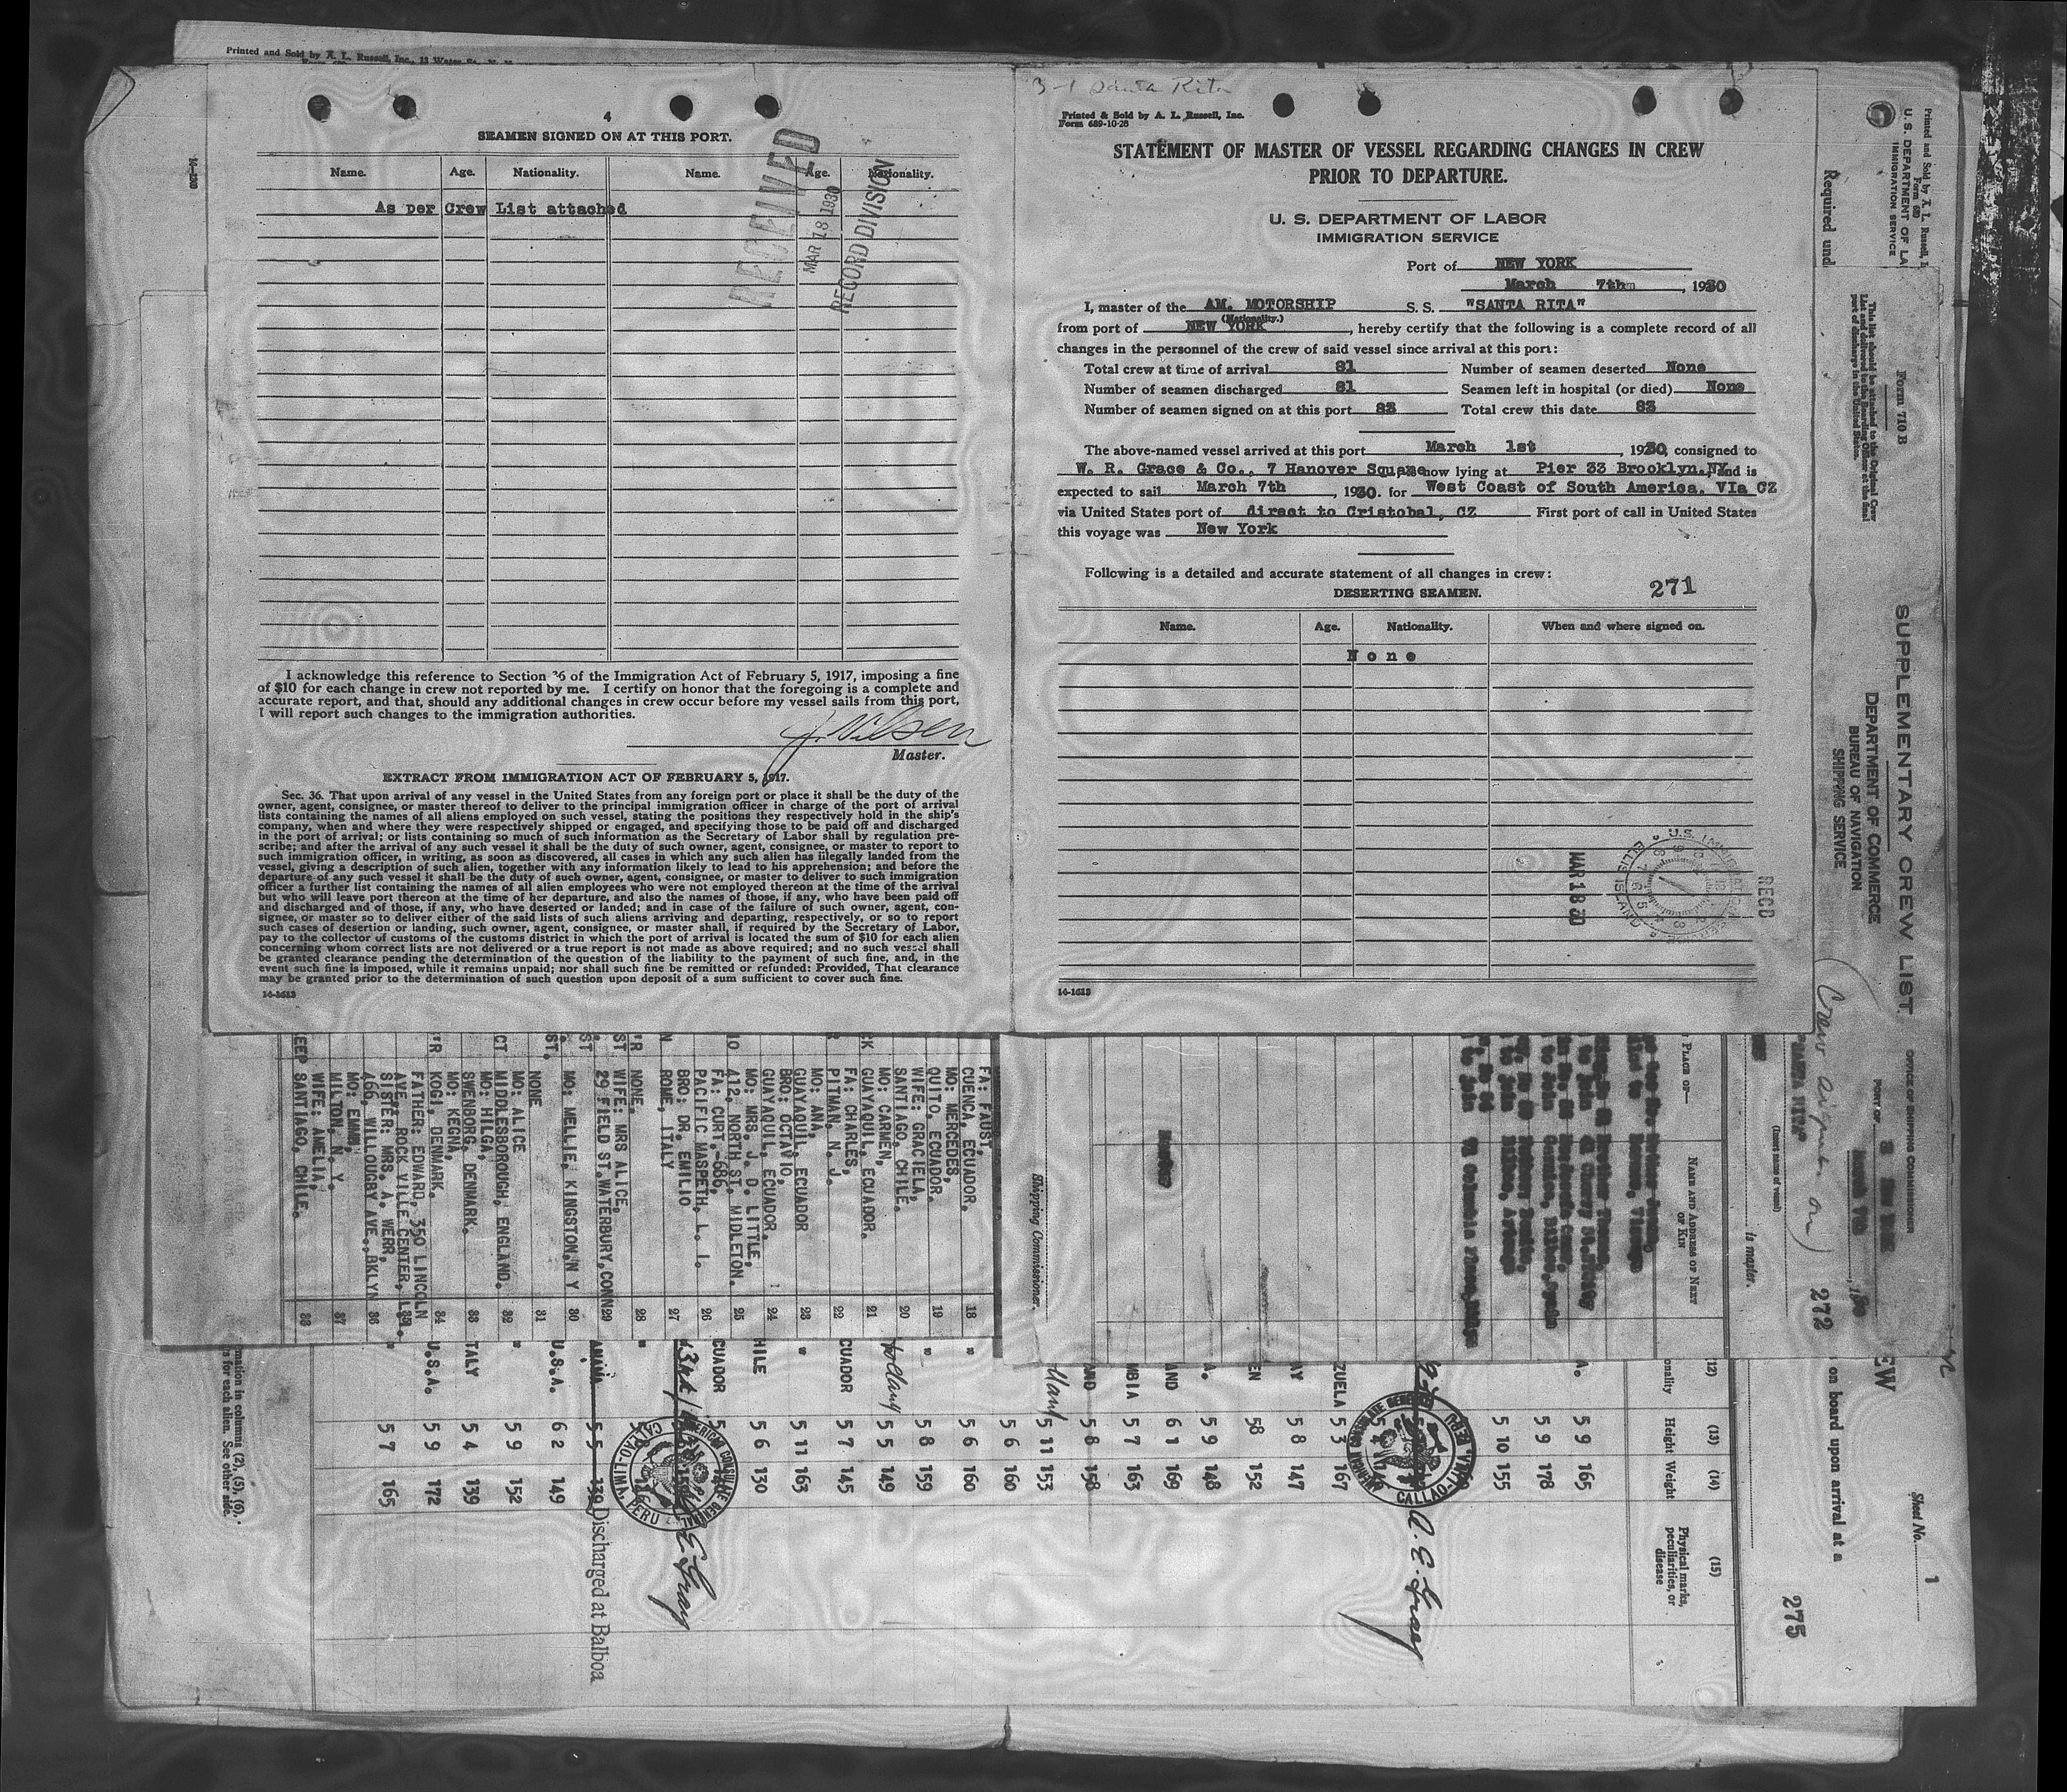 Printed and Sold by A. L. Russell, Inc., 13 Water St., N. Y.
4
SEAMEN SIGNED ON AT THIS PORT.
Name. Age. Nationality. Name. Age. Nationality.
As per Crew List attached
RECEIVED
MAR 18 1930
RECORD DIVISION
I acknowledge this reference to Section 36 of the Immigration Act of February 5, 1917, imposing a fine
of $10 for each change in crew not reported by me. I certify on honor that the foregoing is a complete and
accurate report, and that, should any additional changes in crew occur before my vessel sails from this port,
I will report such changes to the immigration authorities.
J. Nilsen
Master.
EXTRACT FROM IMMIGRATION ACT OF FEBRUARY 5, 1917.
Sec. 36. That upon arrival of any vessel in the United States from any foreign port or place it shall be the duty of the
owner, agent, consignee, or master thereof to deliver to the principal immigration officer in charge of the port of arrival
lists containing the names of all aliens employed on such vessel, stating the positions they respectively hold in the ship's
company, when and where they were respectively shipped or engaged, and specifying those to be paid off and discharged
in the port of arrival; or lists containing so much of such information as the Secretary of Labor shall by regulation pre-
scribe; and after the arrival of any such vessel it shall be the duty of such owner, agent, consignee, or master to report to
such immigration officer, in writing, as soon as discovered, all cases in which any such alien has illegally landed from the
vessel, giving a description of such alien, together with any information likely to lead to his apprehension; and before the
departure of any such vessel it shall be the duty of such owner, agent, consignee, or master to deliver to such immigration
officer a further list containing the names of all alien employees who were not employed thereon at the time of the arrival
but who will leave port thereon at the time of her departure, and also the names of those, if any, who have been paid off
and discharged and of those, if any, who have deserted or landed; and in case of the failure of such owner, agent, con-
signee, or master so to deliver either of the said lists of such aliens arriving and departing, respectively, or so to report
such cases of desertion or landing, such owner, agent, consignee, or master shall, if required by the Secretary of Labor,
pay to the collector of customs of the customs district in which the port of arrival is located the sum of $10 for each alien
concerning whom correct lists are not delivered or a true report is not made as above required; and no such vessel shall
be granted clearance pending the determination of the question of the liability to the payment of such fine, and, in the
event such fine is imposed, while it remains unpaid; nor shall such fine be remitted or refunded: Provided, That clearance
may be granted prior to the determination of such question upon deposit of a sum sufficient to cover such fine.
14-1613
3-1 Santa Rita
Printed & Sold by A. L. Russell, Inc.
Form 689-10-28
STATEMENT OF MASTER OF VESSEL REGARDING CHANGES IN CREW
PRIOR TO DEPARTURE.
U. S. DEPARTMENT OF LABOR
IMMIGRATION SERVICE
Port of NEW YORK
March 7th, 1930
I, master of the AM. MOTORSHIP S. S. "SANTA RITA"
(Nationality.)
from port of NEW YORK, hereby certify that the following is a complete record of all
changes in the personnel of the crew of said vessel since arrival at this port:
Total crew at time of arrival 81 Number of seamen deserted None
Number of seamen discharged 81 Seamen left in hospital (or died) None
Number of seamen signed on at this port 83 Total crew this date 83
The above-named vessel arrived at this port March 1st, 1930, consigned to
W. R. Grace & Co., 7 Hanover Square now lying at Pier 33 Brooklyn.NY and is
expected to sail March 7th, 1930. for West Coast of South America. VIa CZ
via United States port of direct to Cristobal, CZ First port of call in United States
this voyage was New York
Following is a detailed and accurate statement of all changes in crew:
271
DESERTING SEAMEN.
Name. Age. Nationality. When and where signed on.
None
REC'D
MAR 18 30
U.S. IMMIGRATION SERVICE
ELLIS ISLAND
14-1613
Printed and Sold by A. L. Russell, I
Form 680
U. S. DEPARTMENT OF LA
IMMIGRATION SERVICE
Required und
Form 710 B
This list should be attached to the Original Crew
List and delivered to the Boarding Officer at the final
port of discharge in the United States.
SUPPLEMENTARY CREW LIST
DEPARTMENT OF COMMERCE
BUREAU OF NAVIGATION
SHIPPING SERVICE
OFFICE OF SHIPPING COMMISSIONER
PORT OF
(Crew signed on)
272
"SANTA RITA"
(Insert name of vessel)
is master.
PLACE OF—
NAME AND ADDRESS OF NEXT
OF KIN
Master
Shipping Commissioner.
FA: FAUST,
CUENCA, ECUADOR. 18
MO: MERCEDES,
QUITO, ECUADOR. 19
WIFE: GRACIELA,
SANTIAGO, CHILE. 20
MO: CARMEN,
GUAYAQUIL, ECUADOR. 21
FA: CHARLES,
PITMAN, N. J. 22
MO: ANA,
GUAYAQUIL, ECUADOR 23
BRO: OCTAVIO,
GUAYAQUIL, ECUADOR. 24
MO: MRS. J. O. LITTLE,
412, NORTH ST. MIDLETON. 25
FA: CURT,-686,
PACIFIC MASPETH, L. I. 26
BRO: DR. EMILIO
ROME, ITALY 27
NONE. 28
WIFE: MRS ALICE,
29 FIELD ST.WATERBURY,CONN 29
MO: MELLIE, KINGSTON, N Y 30
NONE 31
MO: ALICE
MIDDLESBOROUGH, ENGLAND. 32
MO: HILGA,
SWENBORG, DENMARK. 33
MO: KEGNA,
KOGI, DENMARK. 34
FATHER: EDWARD, 350 LINCOLN
AVE. ROCK VILLE CENTER, L.I. 35
SISTER: MRS. A. WERR,
466, WILLOUGBY AVE.,BKLYN 36
MO: EMMA,
MILTON, N. Y. 37
WIFE: AMELIA,
SANTIAGO, CHILE. 38
Sheet No. 1
275
on board upon arrival at a
(12) (13) (14) (15)
onality Height Weight Physical marks, peculiarities, or disease
A. 5 9 165
5 9 178
5 10 155
ZUELA 5 3 167
AY 5 8 147
EN 58 152
A. 5 9 148
AND 6 1 169
MBIA 5 7 163
AND 5 8 158
5 11 153
5 6 160
" 5 6 160
" 5 8 159
Holland 5 5 149
CUADOR 5 7 145
" 5 11 163
HILE 5 6 130
CUADOR
ANAMA 5 5 139 Discharged at Balboa
U.S.A. 6 2 149
" 5 9 152
TALY 5 4 139
U.S.A. 5 9 172
" 5 7 165
AMERICAN CONSULATE GENERAL
CALLAO-LIMA, PERU
A. E. Gray
rmation in columns (2), (5), (6),
s for each alien. See other side.